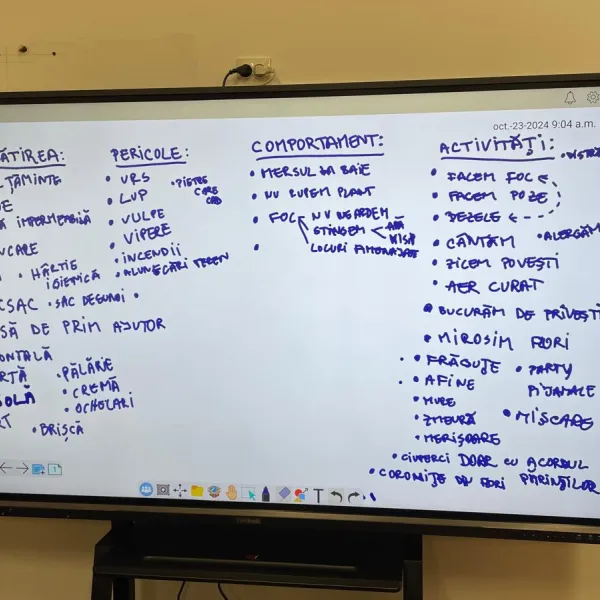 oct.-23-2024 9:04 a.m.
ĂTIREA:
ȚĂMINTE
IMPERMEABILĂ
CARE
• HÂRTIE
IGIENICĂ
CSAC • SAC DEȘEURI •
SĂ DE PRIM AJUTOR
ONTALĂ
• PĂLĂRIE
• CREMĂ
• OCHELARI
• BRIȘCĂ
PERICOLE:
• URS
• LUP
• PIETRE
CARE
CAD
• VULPE
• VIPERE
• INCENDII
• ALUNECĂRI TEREN
COMPORTAMENT:
• MERSUL LA BAIE
• NU RUPEM PLANT
• FOC NU NE ARDEM
STINGEM APĂ
NISIP
LOCURI AMENAJATE
ACTIVITĂȚI:
• FACEM FOC
• FACEM POZE
• BEZELE
• CÂNTĂM
• ALERGĂM
• ZICEM POVEȘTI
• AER CURAT
• BUCURĂM DE PRIVEȘTI
• MIROSIM FLORI
• FRĂGUȚE
• PARTY
PIJAMALE
• AFINE
• MURE
• MIȘCARE
• ZMEURĂ
• MERIȘOARE
• CIUPERCI DOAR CU ACORDUL
PĂRINȚILOR
• CORONIȚE DIN FLORI
ViewSonic